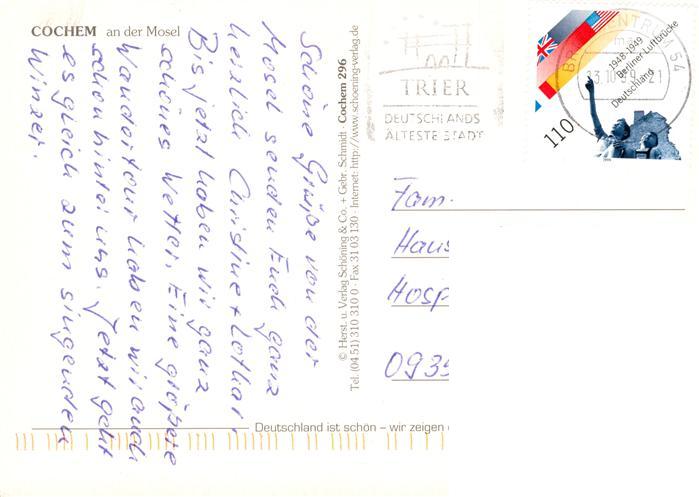 COCHEM an der Mosel
Schöne Grüße von der
Mosel senden Euch ganz
herzlich Christine + Lothar.
Bis jetzt haben wir ganz
schönes Wetter. Eine größere
Wandertour haben wir auch
schon hinter uns. Jetzt geht
es gleich zum singenden
Winzer.
© Herst. u. Verlag Schöning & Co. + Gebr. Schmidt · Cochem 296
Tel. (04 51) 310 310 0 · Fax 31 03 130 · Internet: http://www.schoening-verlag.de
TRIER
DEUTSCHLANDS
ÄLTESTE STADT
BRIEFZENTRUM 54
13.10.99-21
1948-1949
Berliner Luftbrücke
Deutschland
110
Fam.
Haus
Hosp
0935
Deutschland ist schön – wir zeigen